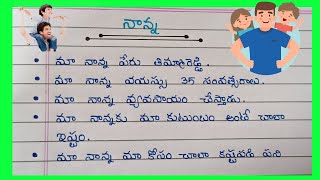 నాన్న
మా నాన్న పేరు తిమ్మారెడ్డి.
మా నాన్న వయస్సు 35 సంవత్సరాలు.
మా నాన్న వ్యవసాయం చేస్తాడు.
మా నాన్నకు మా కుటుంబం అంటే చాలా
ఇష్టం.
మా నాన్న మా కోసం చాలా కష్టపడి పని